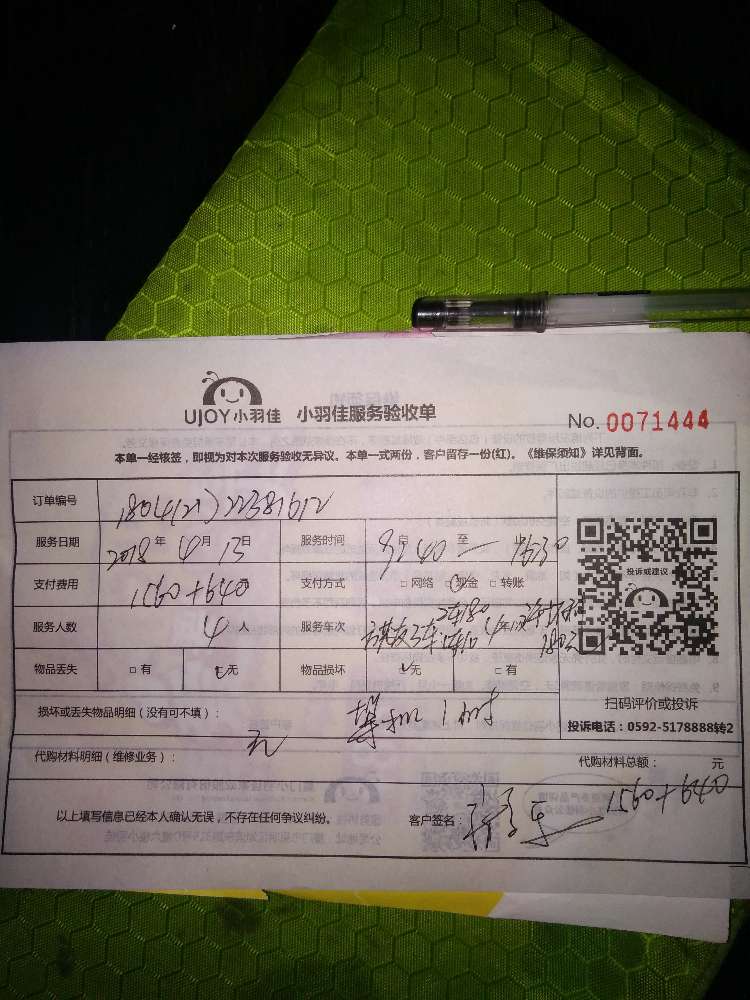 UJOY小羽佳 小羽佳服务验收单
No. 0071444
本单一经核签，即视为对本次服务验收无异议。本单一式两份，客户留存一份(红)。《维保须知》详见背面。
订单编号 1804(21)22381612
服务日期 2018年4月13日 服务时间 自 9:40 至 止
支付费用 1560+640 支付方式 □网络 □现金 □转账
投诉或建议
服务人数 4人 服务车次
物品丢失 □有 □无 物品损坏 □无 □有
扫码评价或投诉
损坏或丢失物品明细（没有可不填）：
投诉电话：0592-5178888转2
代购材料明细（维修业务）： 无 代购材料总额： 元
1560+640
以上填写信息已经本人确认无误，不存在任何争议纠纷。 客户签名：